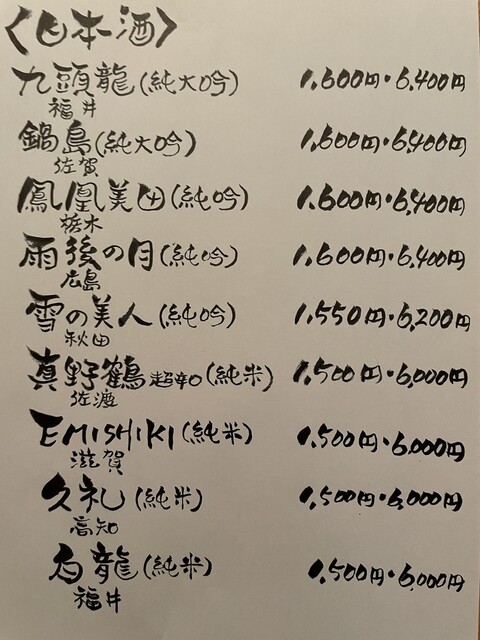 〈日本酒〉
九頭龍(純大吟) 1,600円・6,400円
福井
鍋島(純大吟) 1,600円・6,400円
佐賀
鳳凰美田(純吟) 1,600円・6,400円
栃木
雨後の月(純吟) 1,600円・6,400円
広島
雪の美人(純吟) 1,550円・6,200円
秋田
真野鶴超辛口(純米) 1,500円・6,000円
佐渡
EMISHIKI(純米) 1,500円・6,000円
滋賀
久礼(純米) 1,500円・6,000円
高知
白龍(純米) 1,500円・6,000円
福井